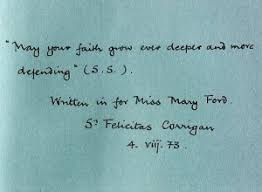 "May your faith grow ever deeper and more
defending" (S.S.).
Written in for Miss Mary Ford.
Sr Felicitas Corrigan
4. viij. 73.